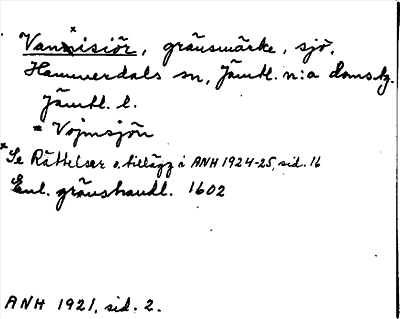 Vannisiör, gränsmärke, sjö,
Hammerdals sn, Jämtl. n:a doms.g.
Jämtl. l.
= Vojmsjön
* Se Rättelser o. tillägg i ANH 1924-25, sid. 16
Enl. gränshandl. 1602
ANH 1921, sid. 2.